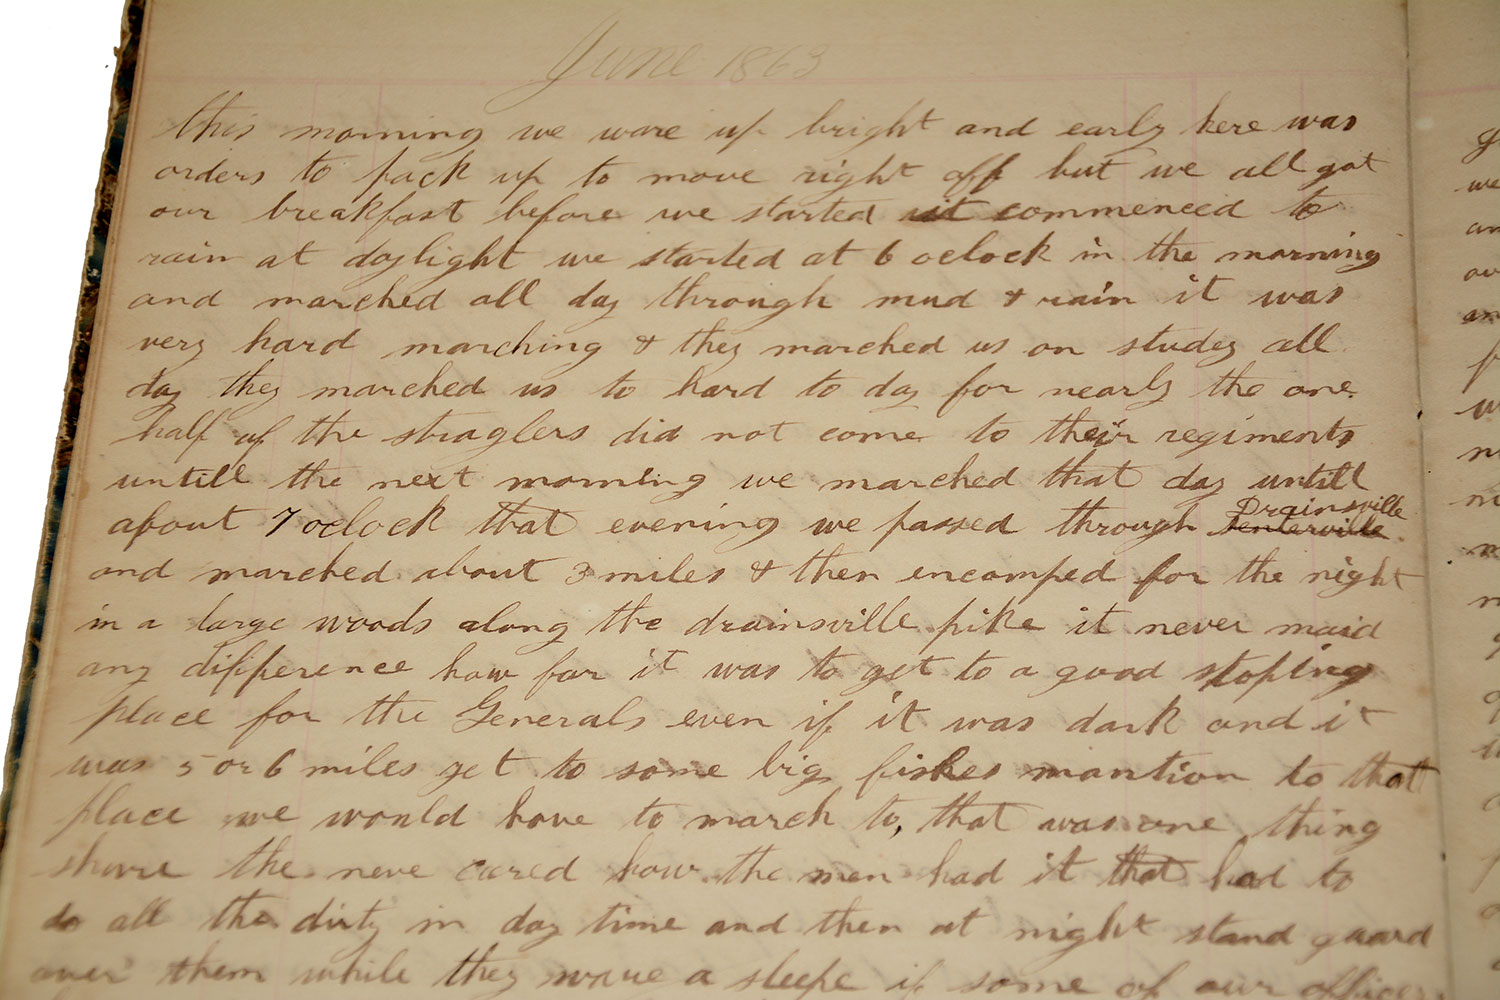 June 1863
this morning we ware up bright and early here was
orders to pack up to move right off but we all got
our breakfast before we started it commenced to
rain at daylight we started at 6 oclock in the morning
and marched all day through mud & rain it was
very hard marching & they marched us on study all
day they marched us to hard to day for nearly the one
half of the straglers did not come to their regiments
untill the next morning we marched that day untill
about 7 oclock that evening we passed through Drainsville
and marched about 3 miles & then encamped for the night
in a large woods along the drainsville pike it never maid
any difference how far it was to get to a good stoping
place for the Generals even if it was dark and it
was 5 or 6 miles yet to some big fishes mantion to that
place we would have to march to, that was one thing
shure the neve cared how the men had it that had to
do all the dirty in day time and then at night stand guard
over them while they ware a sleepe if some of our